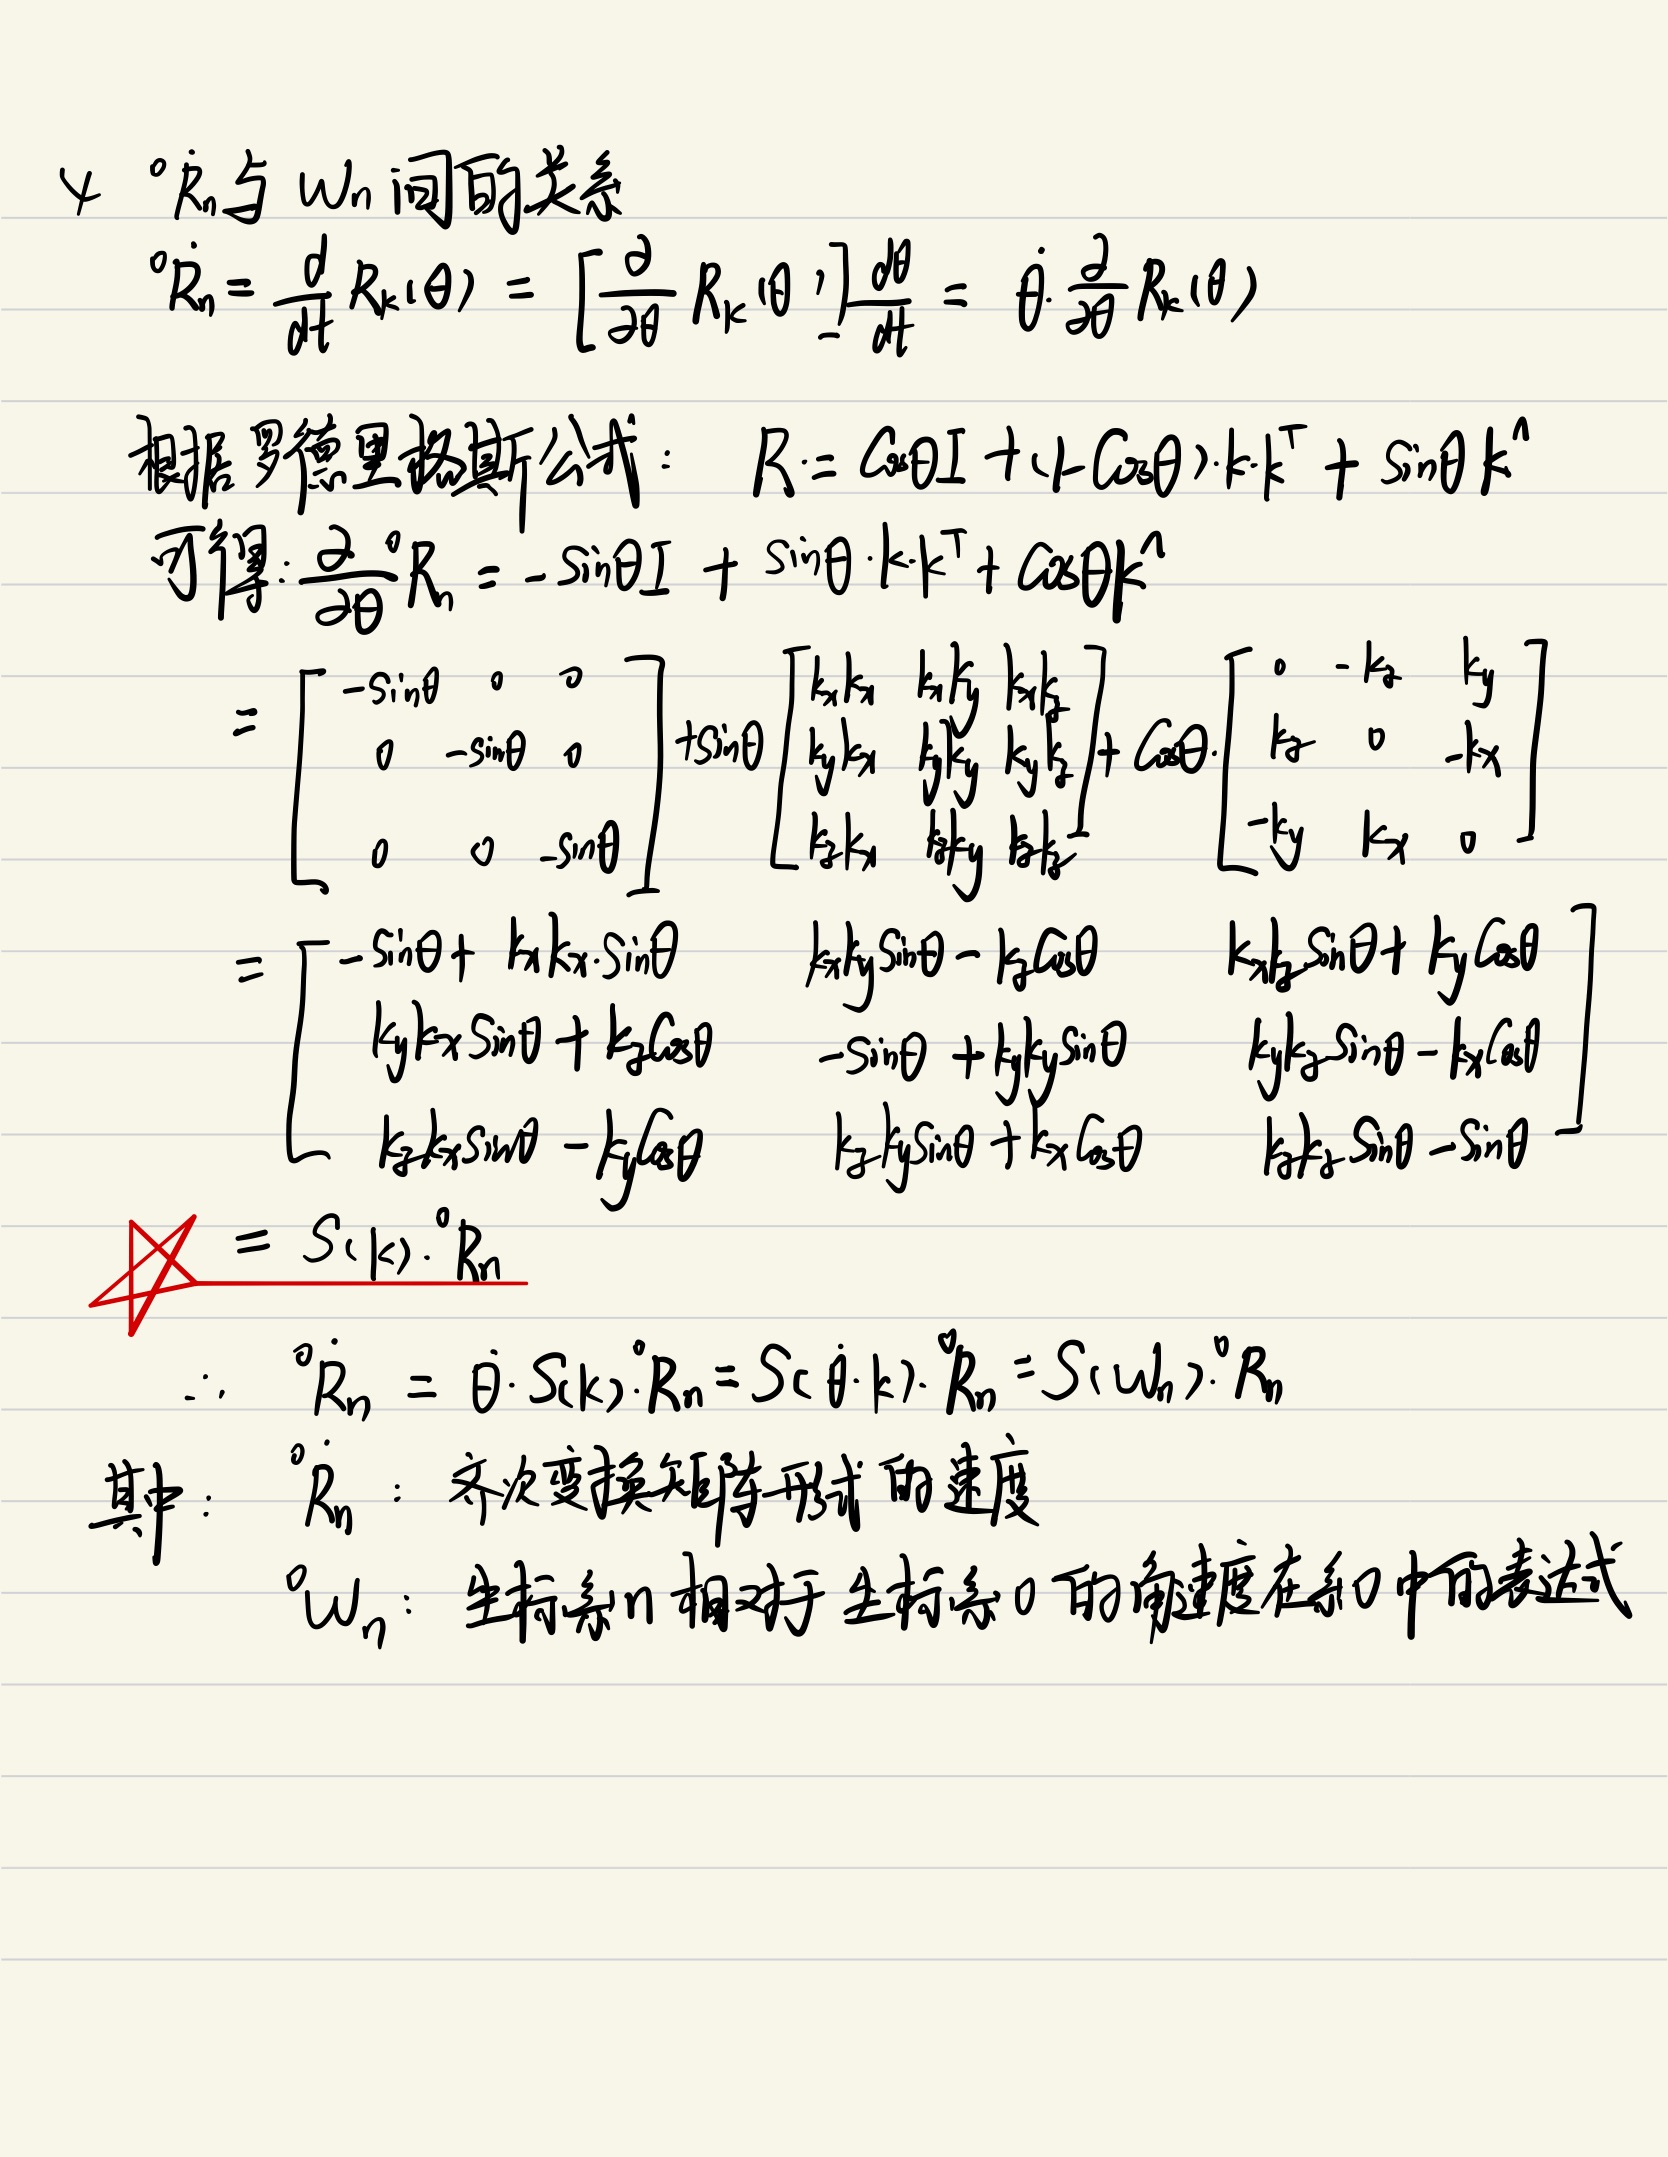 4 ⁰Ṙn与 Wn 间的关系
⁰Ṙn = d/dt Rk(θ) = [∂/∂θ Rk(θ)] dθ/dt = θ̇·∂/∂θ Rk(θ)
根据罗德里格斯公式: R = CosθI + (1-Cosθ)·k·kᵀ + sinθ k^
可得: ∂/∂θ ⁰Rn = -sinθI + sinθ·k·kᵀ + Cosθk^
= [-sinθ 0 0; 0 -sinθ 0; 0 0 -sinθ] + sinθ [kxkx kxky kxkz; kykx kyky kykz; kzkx kzky kzkz] + Cosθ·[0 -kz ky; kz 0 -kx; -ky kx 0]
= [-sinθ + kxkx·sinθ kxkysinθ - kzCosθ kxkzsinθ + kyCosθ
kykxsinθ + kzCosθ -sinθ + kykysinθ kykzsinθ - kxCosθ
kzkxsinθ - kyCosθ kzkysinθ + kxCosθ kzkzsinθ - sinθ]
= S(k)·⁰Rn
∴ ⁰Ṙn = θ̇·S(k)·⁰Rn = S(θ̇·k)·⁰Rn = S(Wn)·⁰Rn
其中: ⁰Ṙn : 齐次变换矩阵形式的速度
⁰Wn : 坐标系n相对于坐标系0的角速度在系0中的表达式